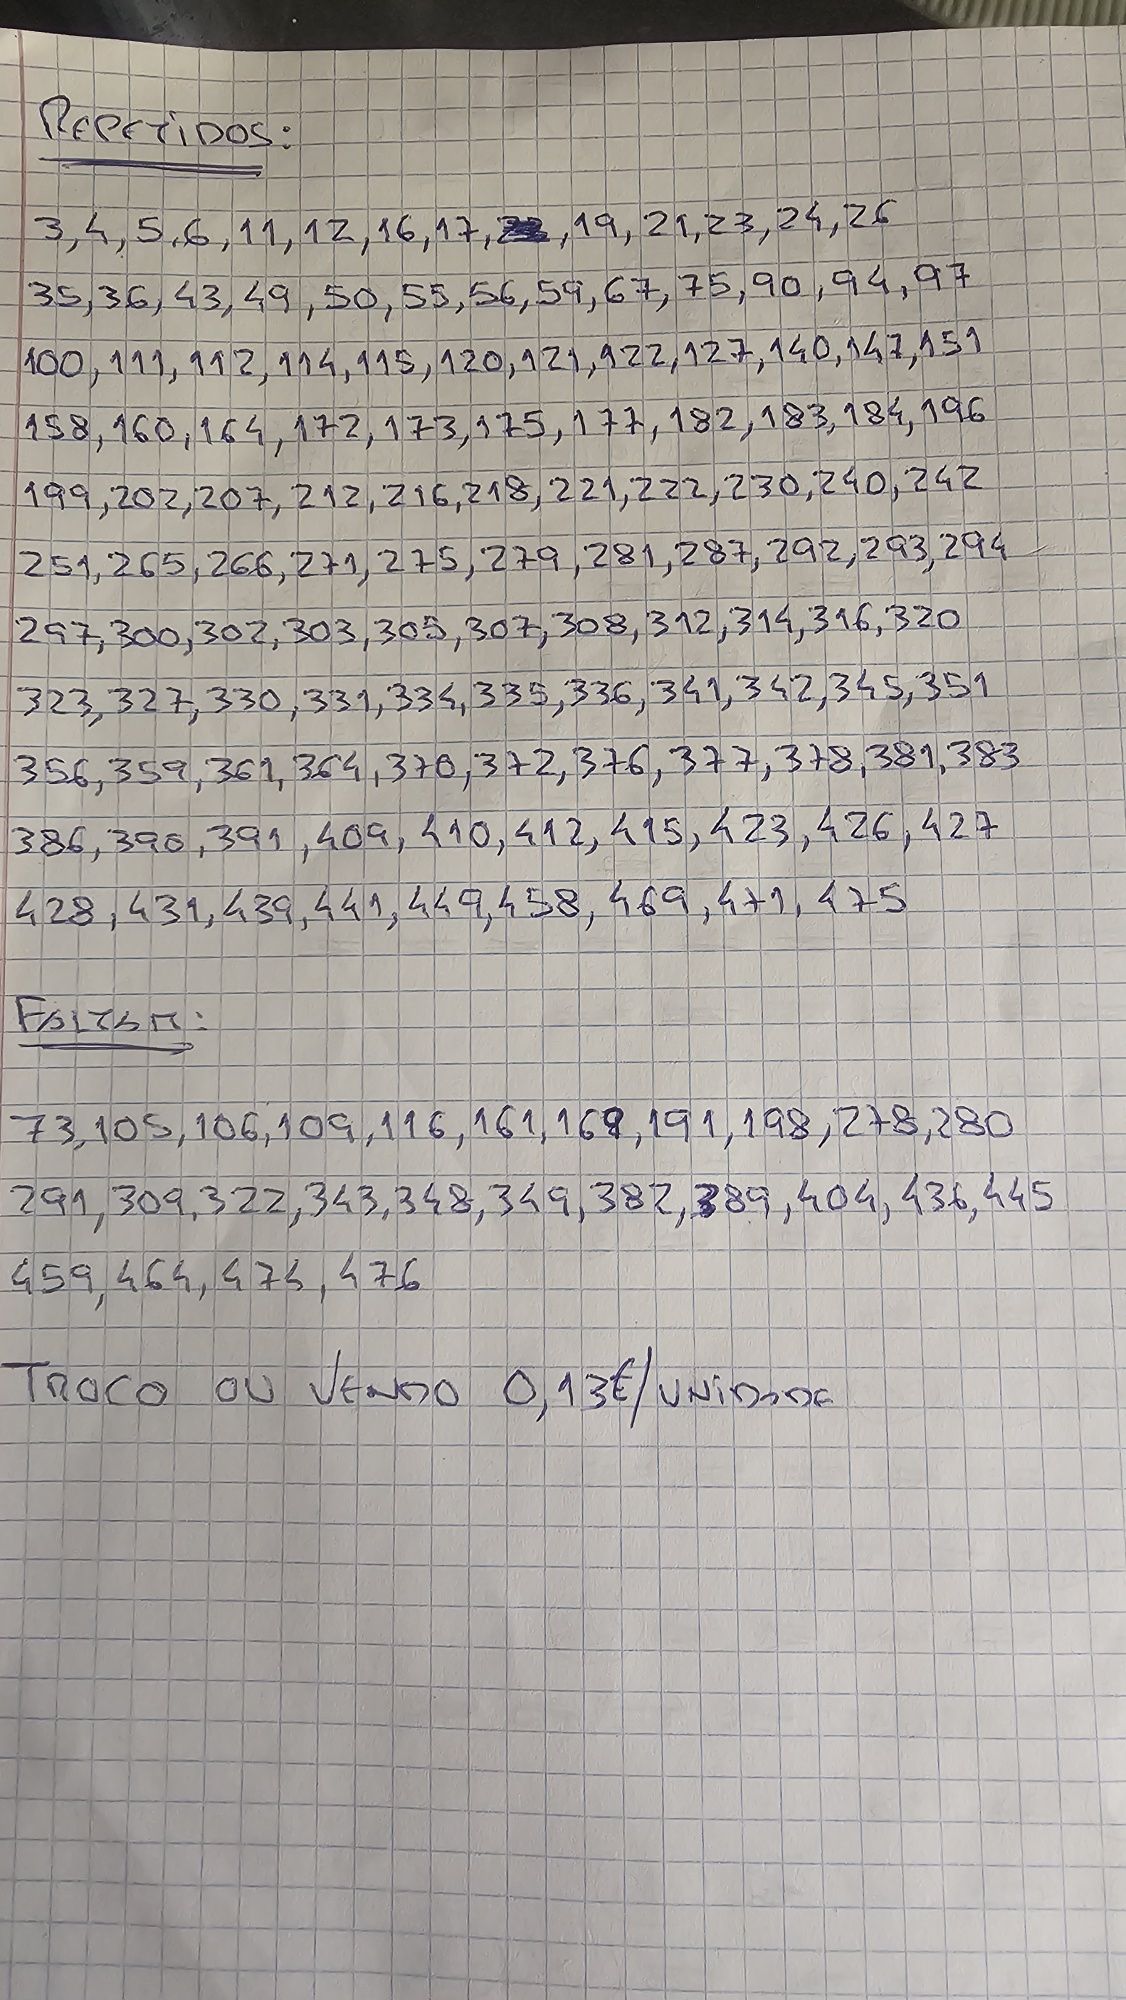 REPETIDOS:
3,4,5,6,11,12,16,17,,19,21,23,24,26
35,36,43,49,50,55,56,59,67,75,90,94,97
100,111,112,114,115,120,121,122,127,140,147,151
158,160,164,172,173,175,177,182,183,184,196
199,202,207,212,216,218,221,222,230,240,242
251,265,266,271,275,279,281,287,292,293,294
297,300,302,303,305,307,308,312,314,316,320
323,327,330,331,334,335,336,341,342,345,351
356,359,361,364,370,372,376,377,378,381,383
386,390,391,409,410,412,415,423,426,427
428,431,439,441,449,458,469,471,475
FALTAM:
73,105,106,109,116,161,,191,198,278,280
291,309,322,343,348,349,382,389,404,436,445
459,464,474,476
TROCO OU VENDO 0,13€/UNIDADE